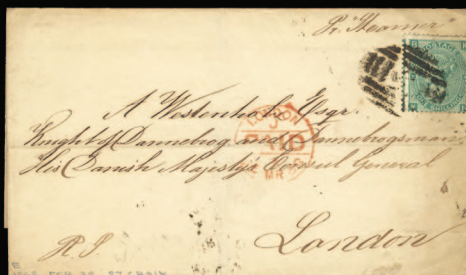 Pr. Steamer
A Westenholz Esqr
Knight of Dannebrog and Dannebrogsmand
His Danish Majesty's Consul General
London
LONDON
PAID
MR